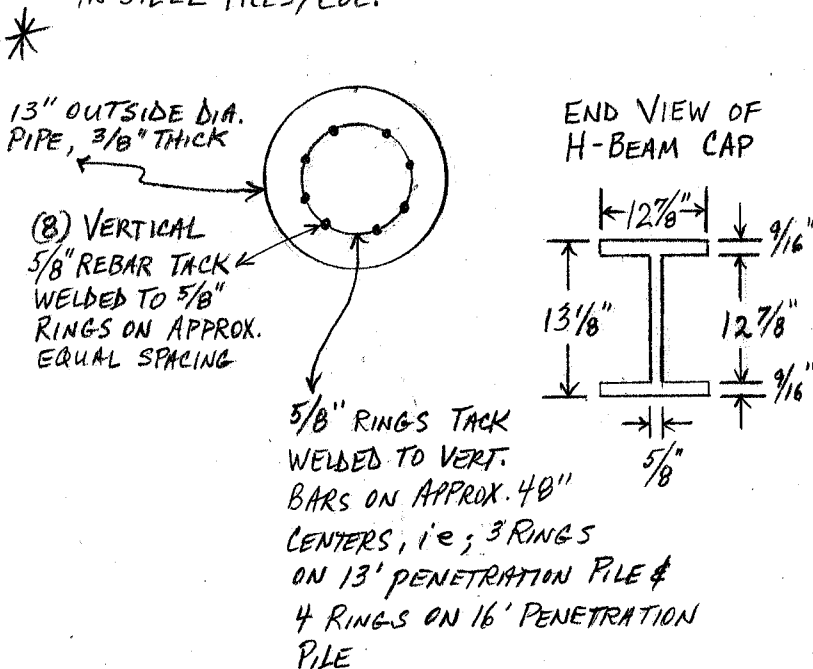 IN STEEL PILES, ECC.
13" OUTSIDE DIA.
PIPE, 3/8" THICK
(8) VERTICAL
5/8" REBAR TACK
WELDED TO 5/8"
RINGS ON APPROX.
EQUAL SPACING
5/8" RINGS TACK
WELDED TO VERT.
BARS ON APPROX. 48"
CENTERS, i'e; 3 RINGS
ON 13' PENETRATION PILE &
4 RINGS ON 16' PENETRATION
PILE
END VIEW OF
H-BEAM CAP
12 7/8"
9/16"
13 1/8"
12 7/8"
9/16"
5/8"